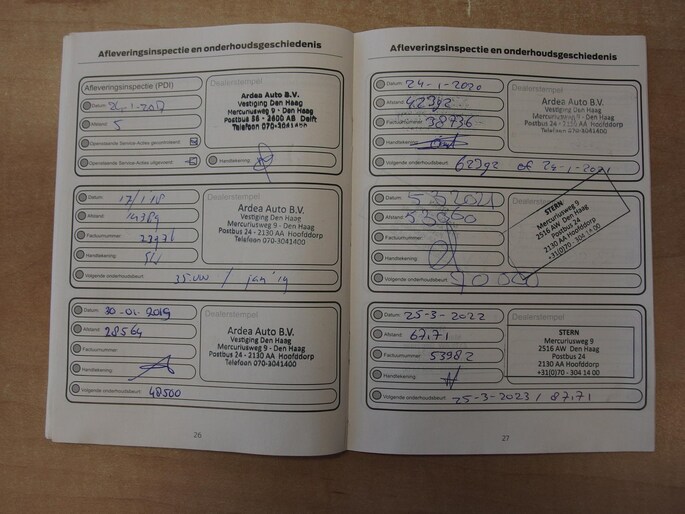 Afleveringsinspectie en onderhoudsgeschiedenis
Afleveringsinspectie (PDI)
Dealerstempel
Datum:
Afstand: 5
Openstaande Service-Acties gecontroleerd:
Openstaande Service-Acties uitgevoerd:
Handtekening:
Ardea Auto B.V.
Vestiging Den Haag
Mercuriusweg 9 - Den Haag
Postbus 56 - 2600 AB Delft
Telefoon 070-3041400
Datum: 17/1/18
Afstand: 14389
Factuurnummer:
Handtekening:
Volgende onderhoudsbeurt: 35.000 / jan '19
Dealerstempel
Ardea Auto B.V.
Vestiging Den Haag
Mercuriusweg 9 - Den Haag
Postbus 24 - 2130 AA Hoofddorp
Telefoon 070-3041400
Datum: 30-01-2019
Afstand: 28564
Factuurnummer:
Handtekening:
Volgende onderhoudsbeurt: 48500
Dealerstempel
Ardea Auto B.V.
Vestiging Den Haag
Mercuriusweg 9 - Den Haag
Postbus 24 - 2130 AA Hoofddorp
Telefoon 070-3041400
26
Afleveringsinspectie en onderhoudsgeschiedenis
Datum: 24-1-2020
Afstand: 42392
Factuurnummer: 38936
Handtekening:
Volgende onderhoudsbeurt: 62392 of 24-1-2021
Dealerstempel
Ardea Auto B.V.
Vestiging Den Haag
Mercuriusweg 9 - Den Haag
Postbus 24 - 2130 AA Hoofddorp
Telefoon 070-3041400
Datum: 5 3 2021
Afstand: 53000
Factuurnummer:
Handtekening:
Volgende onderhoudsbeurt:
Dealerstempel
STERN
Mercuriusweg 9
2516 AW Den Haag
Postbus 24
2130 AA Hoofddorp
+31(0)70 - 304 14 00
Datum: 25-3-2022
Afstand: 67.71
Factuurnummer: 53982
Handtekening:
Volgende onderhoudsbeurt: 25-3-2023 / 87.71
Dealerstempel
STERN
Mercuriusweg 9
2516 AW Den Haag
Postbus 24
2130 AA Hoofddorp
+31(0)70 - 304 14 00
27